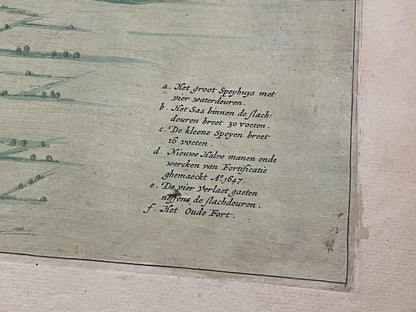 a. Het groot Speyhuys met
vier waterdeuren.
b. Het Sas binnen de slach-
deuren breet 30 voeten.
c. De kleene Speyen breet
16 voeten.
d. Nieuwe Halve manen ende
wercken van Fortificatie
ghemaeckt Aº. 1647.
e. De vier Verlaet gaeten
neffens de slachdeuren.
f. Het Oude Fort.